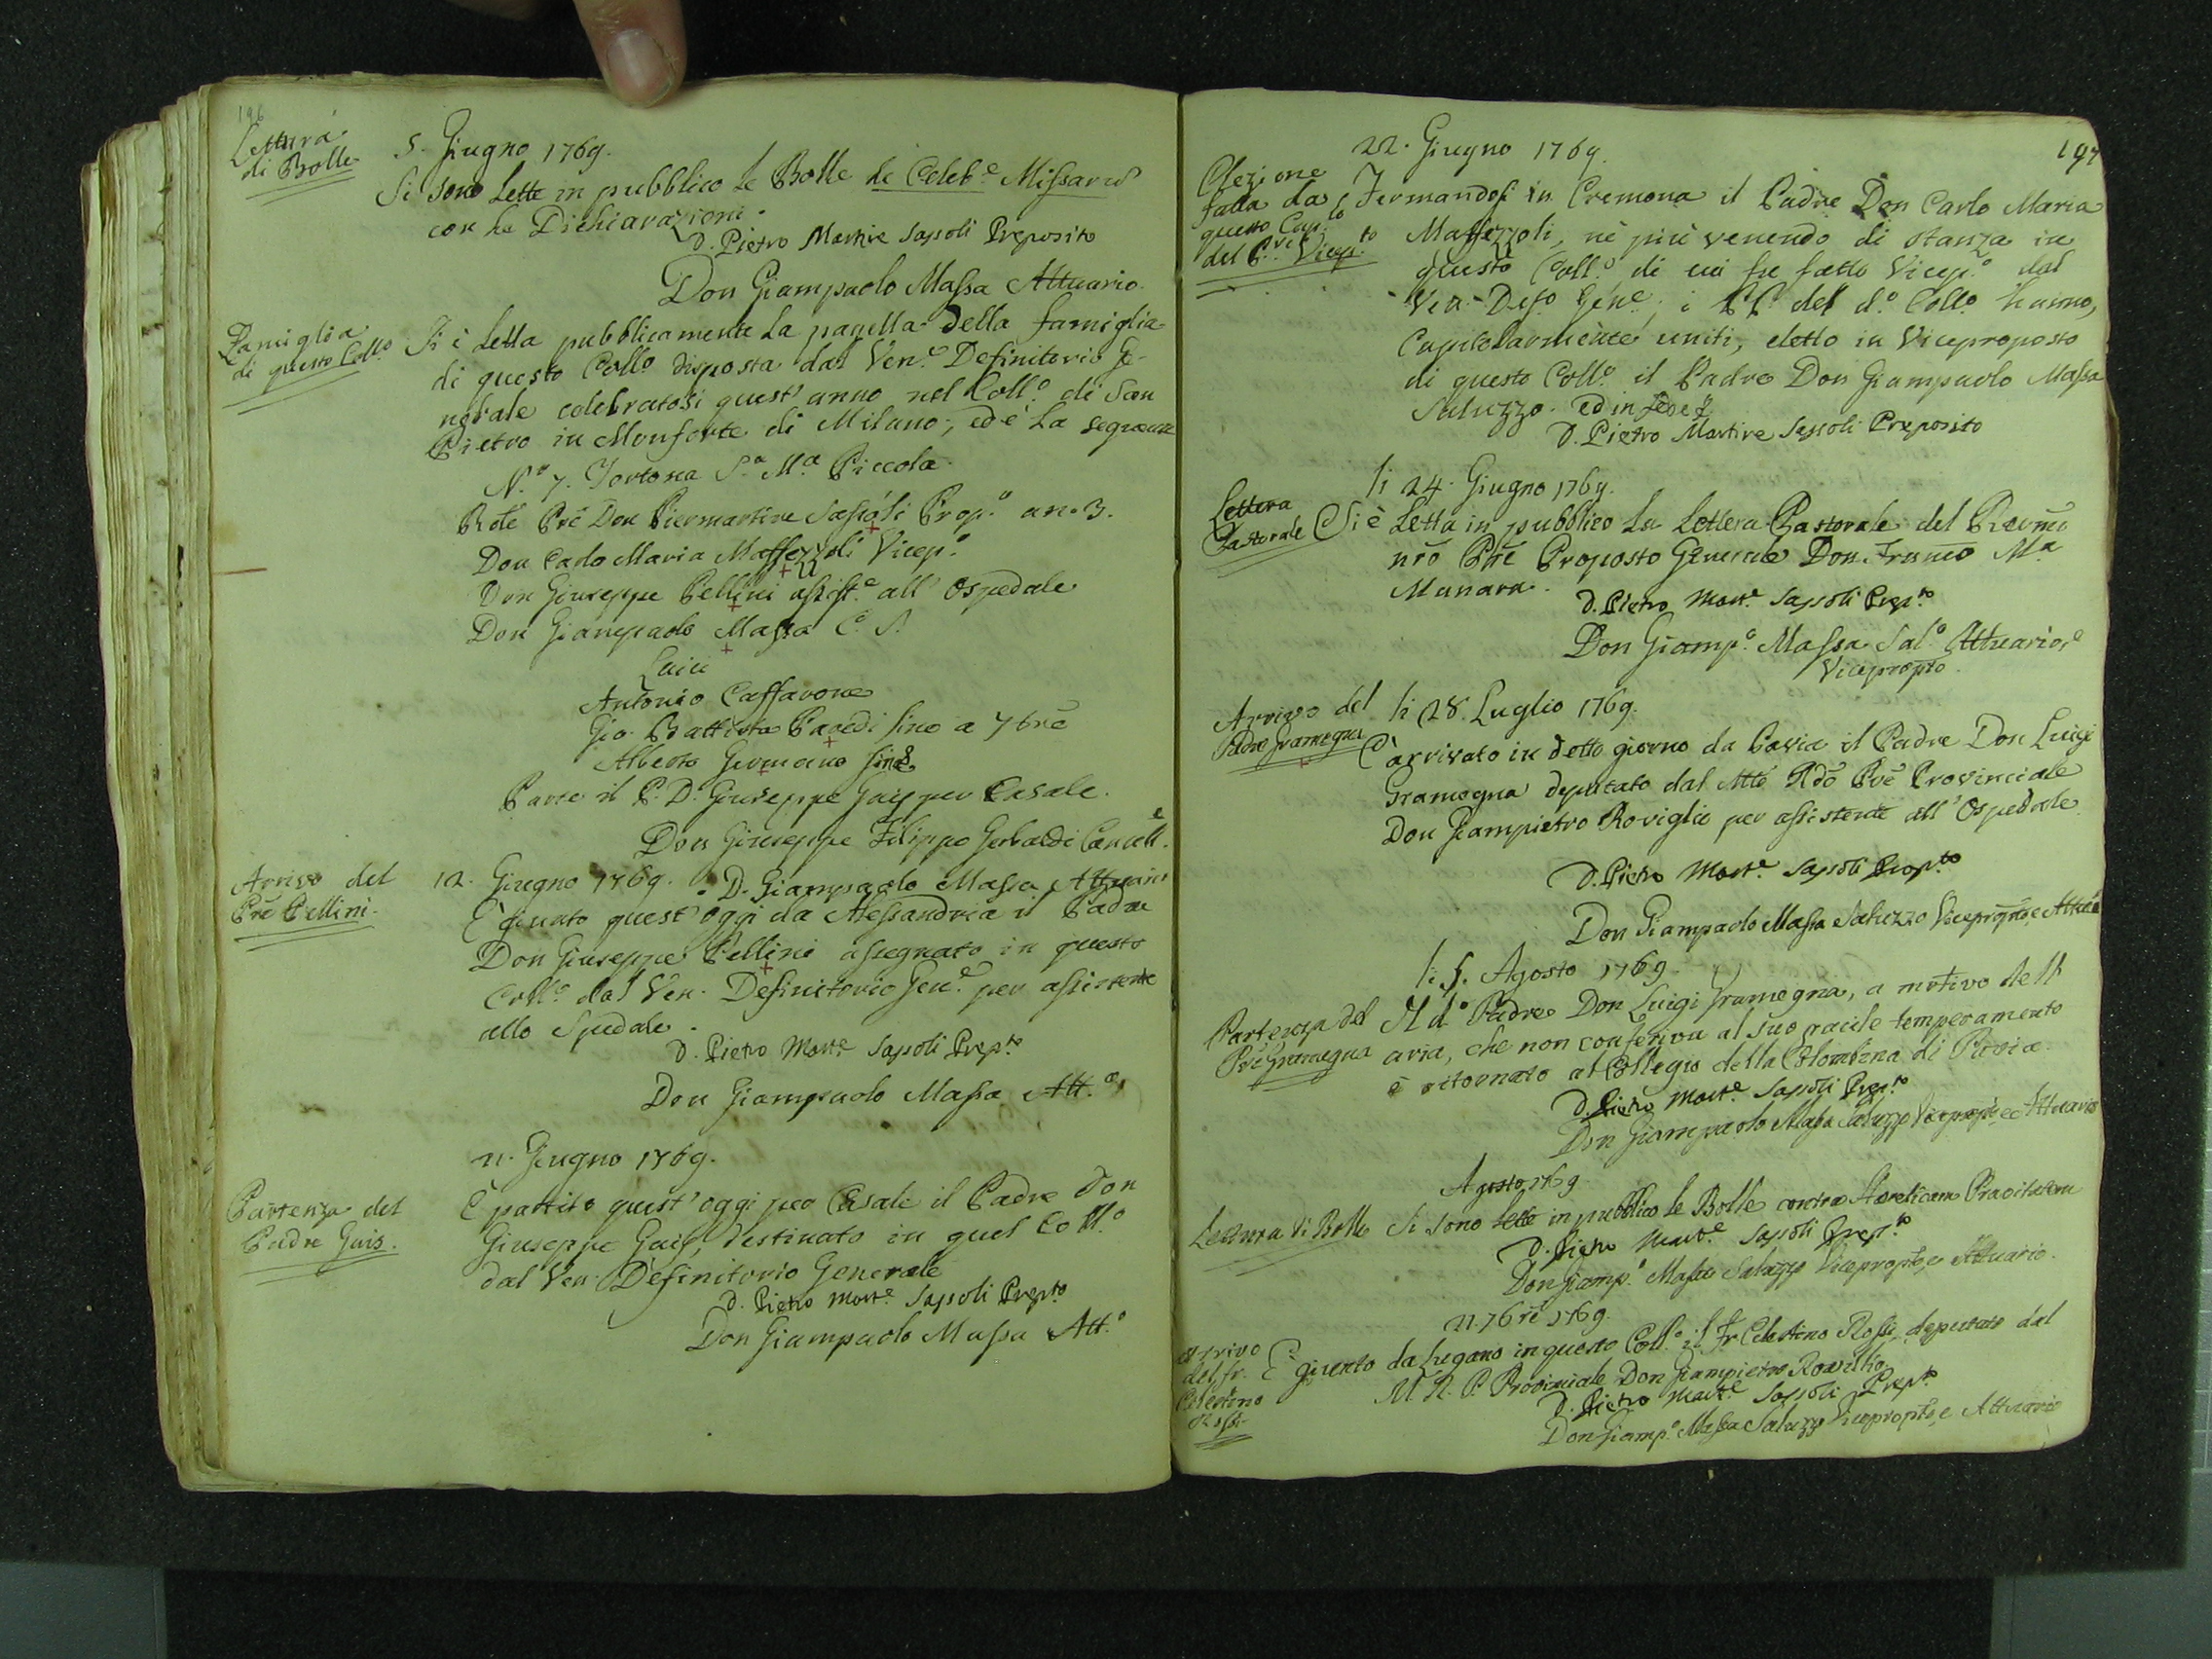 196
Lettura
di Bolle
5. Giugno 1769.
Si sono lette in pubblico le Bolle de Celeb.e Missarum
con le Dichiarazioni.
D. Pietro Martire Sassoli Preposito
Don Giampaolo Massa Attuario.
Famiglia
di questo Coll.o
Si è letta pubblicamente la pagella della famiglia
di questo Coll.o disposta dal Ven.e Definitorio Ge-
nerale celebratosi quest'anno nel Coll.o di San
Pietro in Monforte di Milano, ed è la seguente
N.o 7. Tortona S.a M.a Piccola.
Pre Don Piermartire Sassoli Prop.o an. 3.
Don Carlo Maria Maffezzoli Vicep.o
Don Giuseppe Pellini assist.e all'Ospedale
Don Giampaolo Massa C. S.
Laici
Antonio Caffarone
Gio. Battista Paredi sino a 7bre
Alberto Germano
Parte il P. D. Giuseppe Gais per Casale.
Don Giuseppe Filippo Gerbaldi Cancell.e
Arrivo del
Pre Pellini.
12. Giugno 1769. D. Giampaolo Massa Attuario
È giunto quest'oggi da Alessandria il Padre
Don Giuseppe Pellini assegnato in questo
Coll.o dal Ven. Definitorio Gen.e per assistente
allo Spedale.
D. Pietro Mart.e Sassoli Prep.to
Don Giampaolo Massa Att.o
Partenza del
Padre Gais.
21. Giugno 1769.
È partito quest'oggi per Casale il Padre Don
Giuseppe Gais, destinato in quel Coll.o
dal Ven. Definitorio Generale
D. Pietro Mart.e Sassoli Prep.to
Don Giampaolo Massa Att.o
197
22. Giugno 1769.
Elezione
fatta da
questo Cap.lo
del P.re Vicep.to
Fermandosi in Cremona il Padre Don Carlo Maria
Maffezzoli, nè più venendo di stanza in
questo Coll.o di cui fu fatto Vicep.o dal
Ven. Def.o Gen.e, i PP. del d.o Coll.o hanno,
Capitolarmente uniti, eletto in Viceproposto
di questo Coll.o il Padre Don Giampaolo Massa
Saluzzo. ed in fede
D. Pietro Martire Sassoli Preposito
Lettera
Pastorale
li 24. Giugno 1769.
Si è letta in pubblico la Lettera Pastorale del Revmo
nro Pre Proposto Generale Don Franco M.a
Manara.
D. Pietro Mart.e Sassoli Prep.to
Don Giamp.o Massa Sal.o Attuario, e
Vicepropto.
Arrivo del
Padre Gramegna
li 28. Luglio 1769.
È arrivato in detto giorno da Pavia il Padre Don Luigi
Gramegna deputato dal Mto Rdo Pre Provinciale
Don Giampietro Roviglio per assistente all'Ospedale.
D. Pietro Mart.e Sassoli Prep.to
Don Giampaolo Massa Saluzzo Vicepropto, e Attuario
li 5. Agosto 1769.
Partenza del
Pre Gramegna
Il d.o Padre Don Luigi Gramegna, a motivo dell'
aria, che non conferiva al suo gracile temperamento
è ritornato al Collegio della Colombina di Pavia.
D. Pietro Mart.e Sassoli Prep.to
Don Giampaolo Massa Saluzzo Vicepropto, e Attuario
Agosto 1769.
Lettura di Bolle
Si sono lette in pubblico le Bolle contra Haereticam Pravitatem
D. Pietro Mart.e Sassoli Prep.to
Don Giamp.o Massa Saluzzo Vicepropto, e Attuario.
21. 7bre 1769.
Arrivo
del fr.
Celestino
Rossi
È giunto da Lugano in questo Coll.o il Fr. Celestino Rossi, deputato dal
M. R. P. Provinciale Don Giampietro Roviglio
D. Pietro Mart.e Sassoli Prep.to
Don Giamp.o Massa Saluzzo Vicepropto, e Attuario